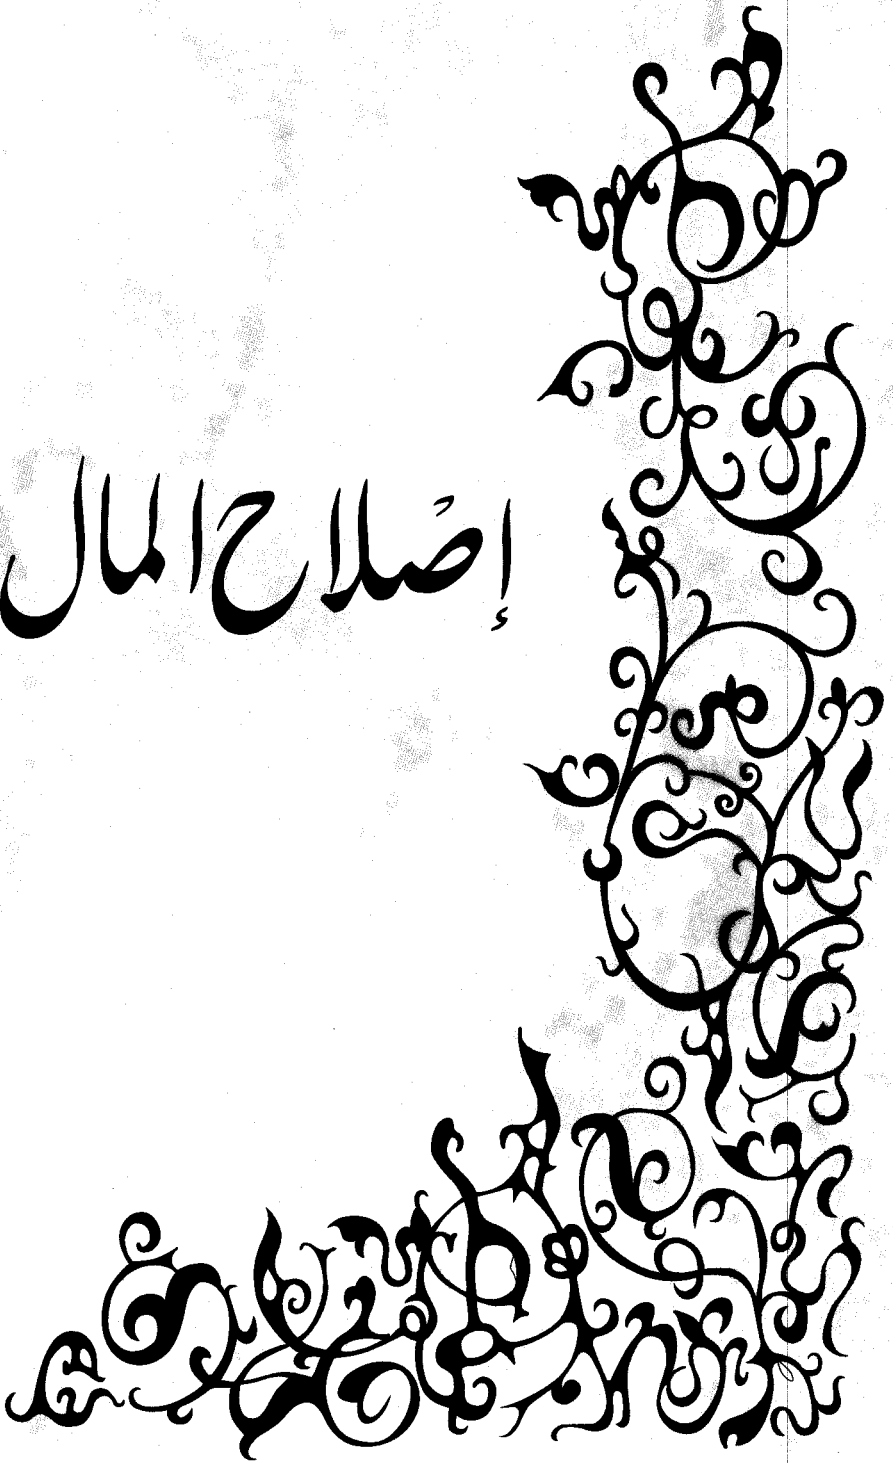 إصلاح المال